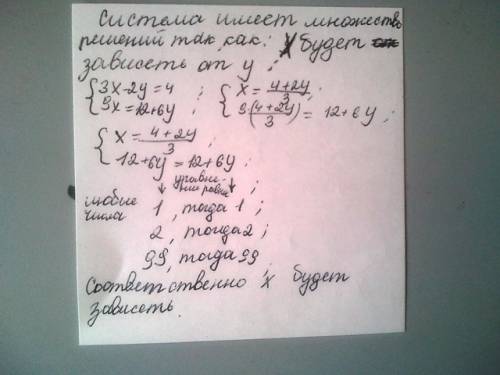 Система имеет множество
решений так как: x будет
зависеть от y;
{3x-2y=4 ; {x=(4+2y)/3 ;
{9x=12+6y {9·(4+2y)/3 = 12+6y ;
{x=(4+2y)/3 ;
{12+6y=12+6y
уравне-
ния равны
любые
числа
1, тогда 1;
2, тогда 2;
99, тогда 99;
Соответственно x будет
зависеть.